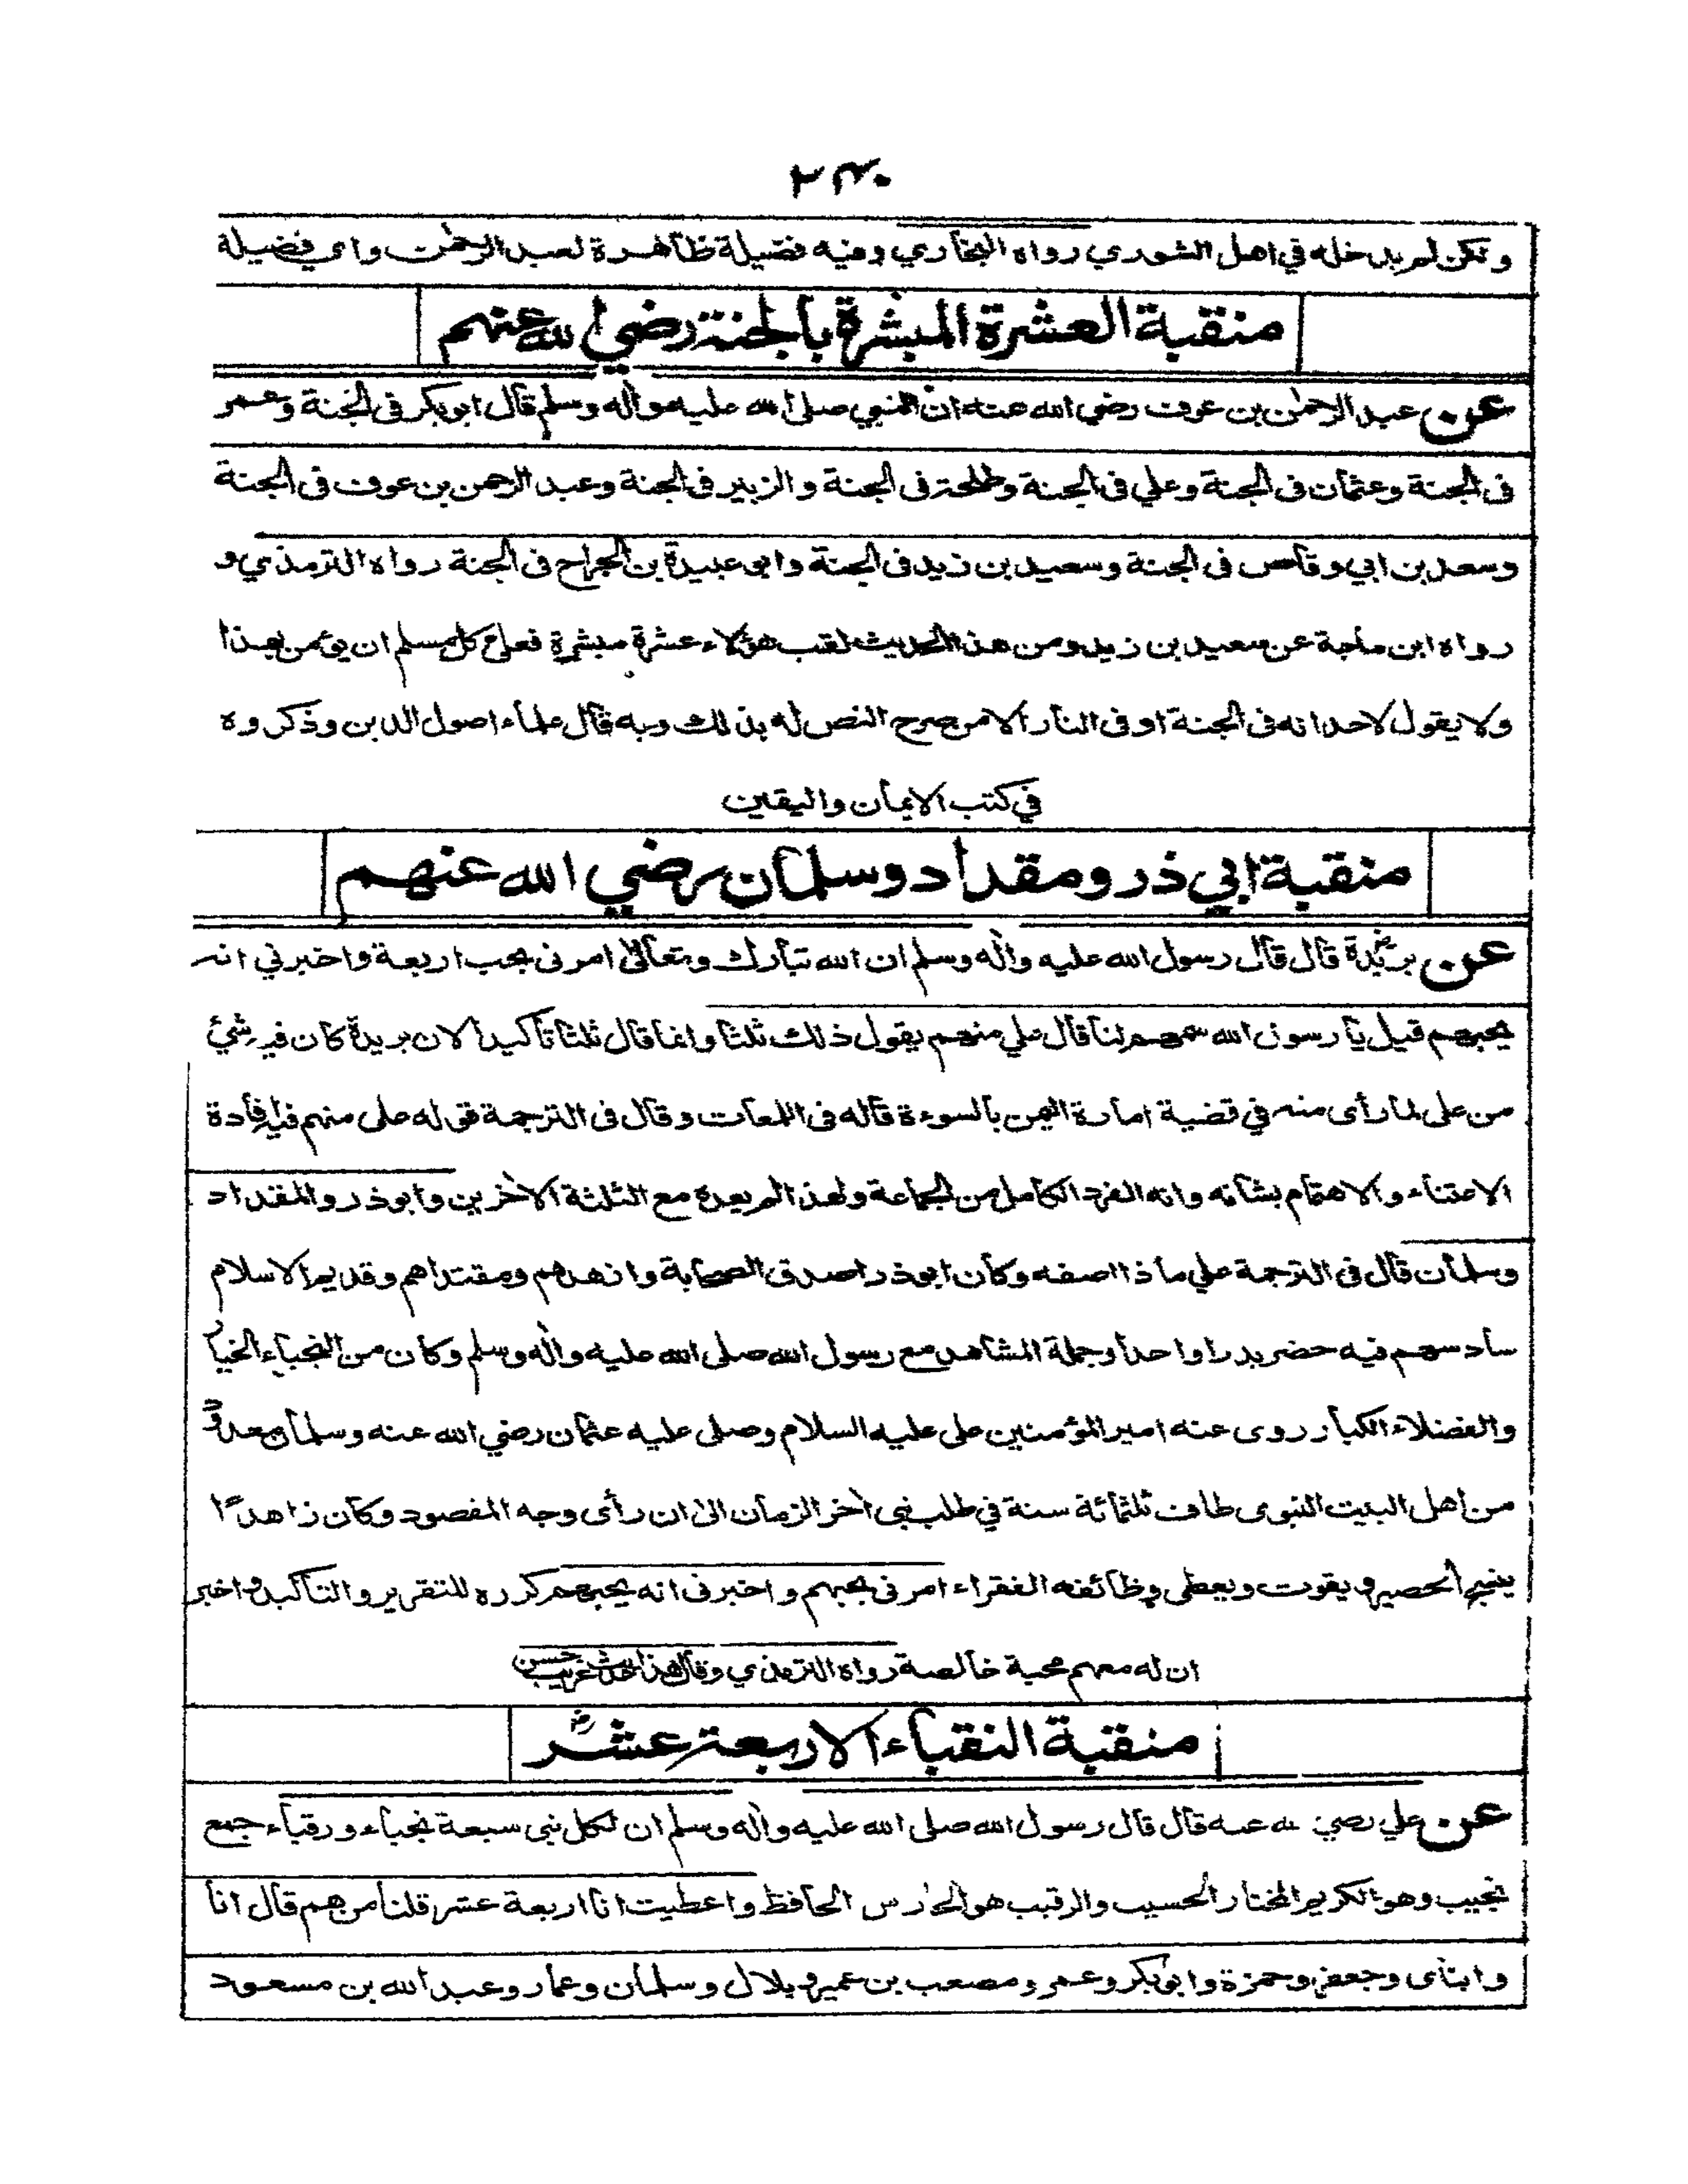 ٢٣٠
ولكن لم يدخله في اهل الشوري رواه البخاري وفيه فضيلة ظاهرة لعبد الرحمٰن واي فضيلة
منقبة العشرة المبشرة بالجنة رضي الله عنهم
عن عبد الرحمٰن بن عوف رضي الله عنه ان النبي صلى الله عليه واٰله وسلم قال ابوبكر فى الجنة وعمر
فى الجنة وعثمان فى الجنة وعلي فى الجنة وطلحة فى الجنة والزبير فى الجنة وعبد الرحمن بن عوف فى الجنة
وسعد بن ابي وقاص فى الجنة وسعيد بن زيد فى الجنة وابو عبيدة بن الجراح فى الجنة رواه الترمذي و
رواه ابن ماجة عن سعيد بن زيد ومن هذا الحديث لقب هؤلاء عشرة مبشرة فعلى كل مسلم ان يؤمن بهذا
ولا يقول لاحد انه فى الجنة او فى النار الا من صرح النص له بذلك وبه قال علماء اصول الدين وذكروه
في كتب الايمان واليقين
منقبة ابي ذر ومقداد وسلمان رضي الله عنهم
عن بريدة قال قال رسول الله عليه واٰله وسلم ان الله تبارك وتعالىٰ امرنى بحب اربعة واخبرني انه
يحبهم قيل يا رسول الله سمهم لنا قال علي منهم يقول ذلك ثلثا وانما قال ثلثا تأكيدا لان بريدة كان فيه شئ
من على لما رأى منه في قضية امارة اليمن بالسوءة قاله فى اللمعات وقال فى الترجمة قوله على منهم فيه افادة
الاعتناء والاهتمام بشانه وانه الفرد الكامل من الجماعة ولهذا لم يعده مع الثلثة الاخرين وابوذر والمقداد
وسلمان قال فى الترجمة علي ماذا اصفه وكان ابوذر اصدق الصحابة وازهدهم ومقتداهم وقديم الاسلام
سادسهم فيه حضر بدرا واحدا وجملة المشاهد مع رسول الله صلى الله عليه واٰله وسلم وكان من النجباء الخيار
والفضلاء الكبار روى عنه امير المؤمنين على عليه السلام وصلى عليه عثمان رضي الله عنه وسلمان معدود
من اهل البيت النبوى طاف ثلثمائة سنة في طلب نبى اٰخر الزمان الىٰ ان رأى وجه المقصود وكان زاهدًا
ينسج الحصير ويقوت ويعطى وظائفه الفقراء امرنى بحبهم واخبرنى انه يحبهم كرره للتقرير والتأكيد واخبر
ان له معهم محبة خالصة رواه الترمذي وقال هذا حديث غريب حسن
منقبة النقباء الاربعة عشر
عن علي رضي الله عنه قال قال رسول الله صلى الله عليه واٰله وسلم ان لكل نبى سبعة نجباء ورقباء جمع
نجيب وهو الكريم المختار الحسيب والرقيب هو الحارس الحافظ واعطيت انا اربعة عشر قلنا من هم قال انا
وابناى وجعفر وحمزة وابوبكر وعمر ومصعب بن عمير وبلال وسلمان وعمار وعبد الله بن مسعود